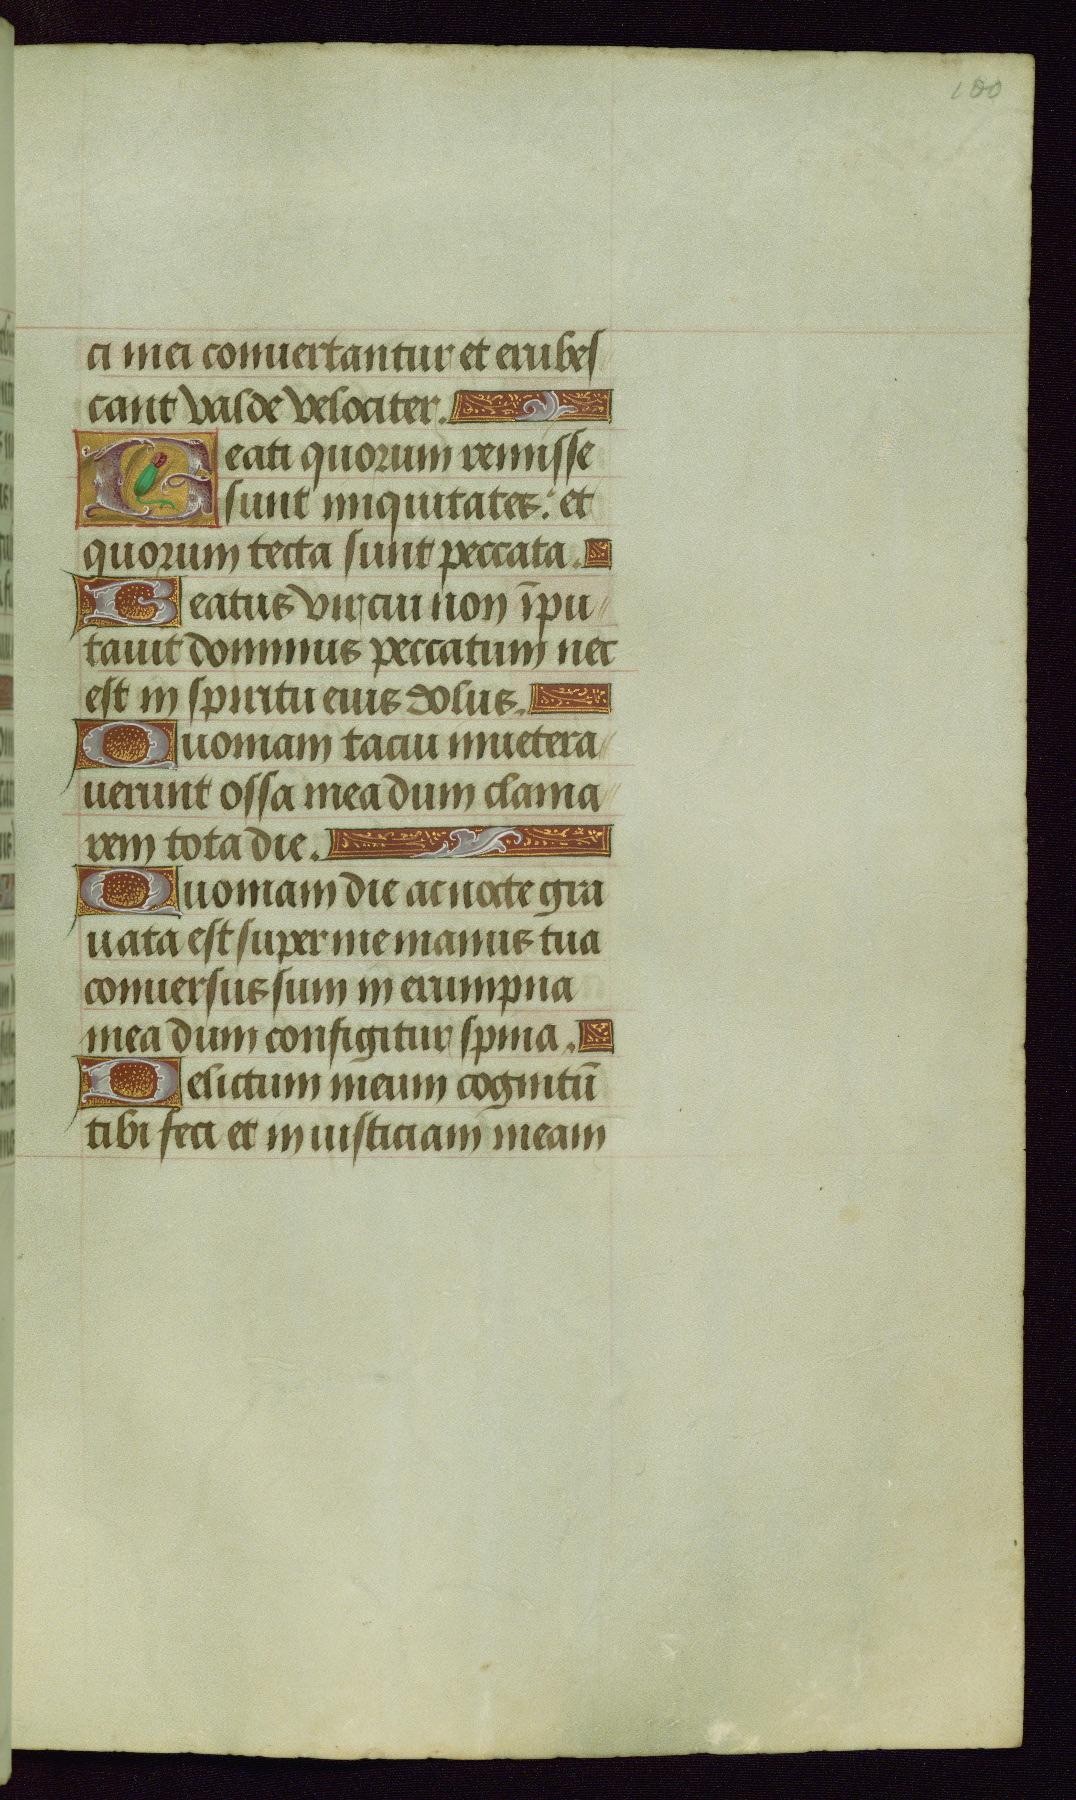 180
ci mei conuertantur et erubes
cant valde velociter.
Beati quorum remisse
sunt iniquitates: et
quorum tecta sunt peccata.
Beatus vir cui non īpu
tauit dominus peccatum nec
est in spiritu eius dolus.
Quoniam tacui inuetera
uerunt ossa mea dum clama
rem tota die.
Quoniam die ac nocte gra
uata est super me manus tua
conuersus sum in erumpna
mea dum configitur spina.
Delictum meum cognitū
tibi feci et in iusticiam meam